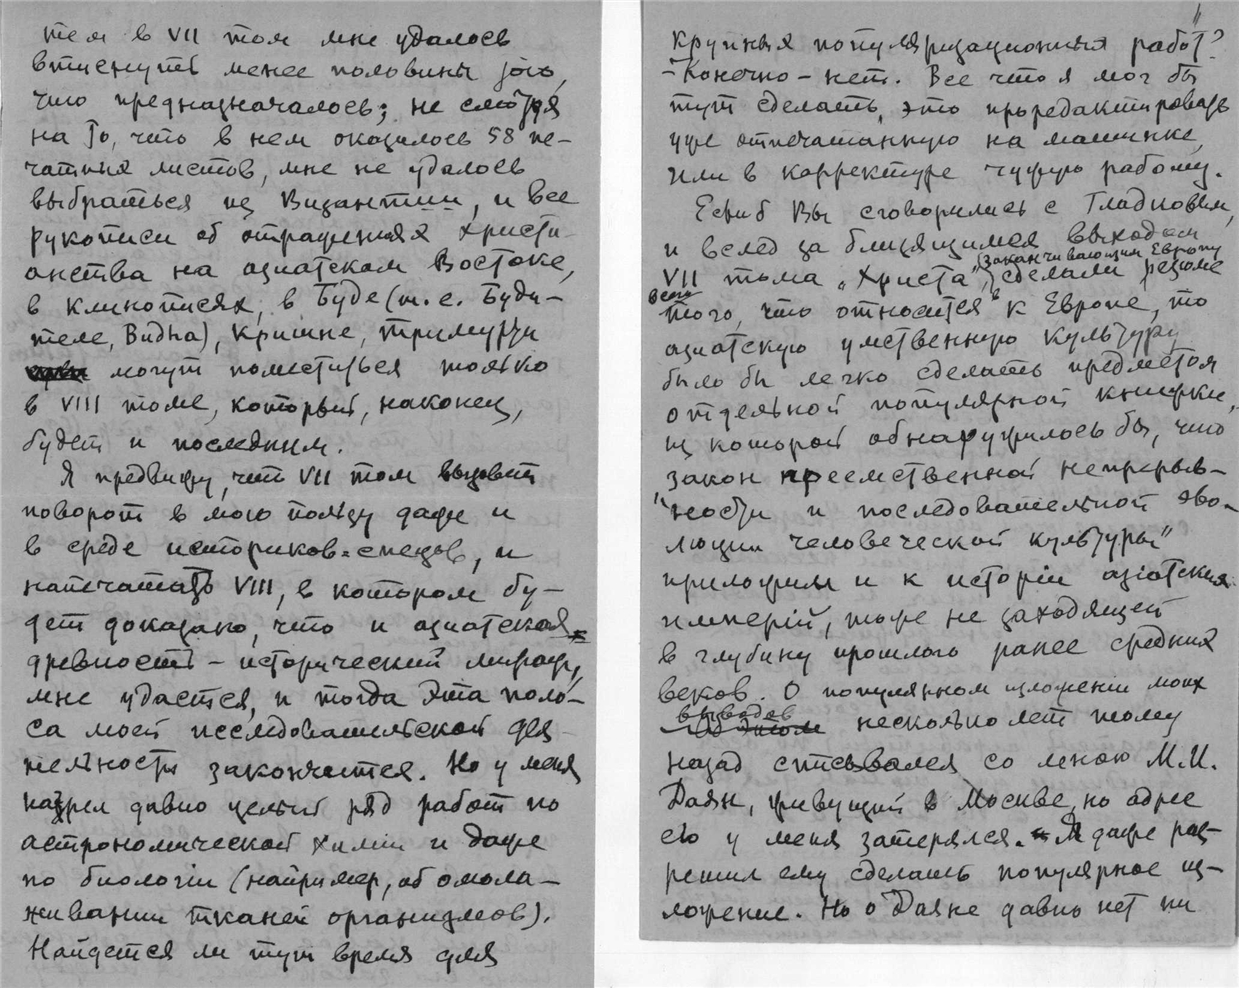 тем в VII том мне удалось
втиснуть менее половины того,
что предназначалось; не смотря
на то, что в нем оказалось 58 пе-
чатных листов, мне не удалось
выбраться из Византии, и все
рукописи об отражениях христи-
анства на азиатском Востоке,
в клинописях, в Буде (т. е. Буди-
теле, Видна), Кришне, тримурти
могут поместиться только
в VIII томе, который, наконец,
будет и последним.
Я предвижу, что VII том вызовет
поворот в мою пользу даже и
в среде историков-спецов, и
напечатать VIII, в котором бу-
дет доказано, что и азиатская
древность – исторический мираж,
мне удастся, и тогда эта поло-
са моей исследовательской дея-
тельности закончится. Но у меня
назрел давно целый ряд работ по
астрономической химии и даже
по биологіи (например, об омола-
живании тканей организмов).
Найдется ли тут время для
крупных популяризационных работ?
– Конечно – нет. Все что я мог бы
тут сделать, это проредактировать
уже отпечатанную на машинке,
или в корректуре чужую работу.
Если б Вы сговорились с Гладковым,
и вслед за близящимся выходом
VII тома „Христа", заканчивающим Европу, сделали резюме
всего того, что относится в к Европе, то
азиатскую умственную культуру
было бы легко сделать предметом
отдельной популярной книжки,
из которой обнаружилось бы, что
закон преемственной непрерыв-
"ности и последовательной эво-
люции человеческой культуры"
приложим и к исторіи азіатских
имперій, тоже не заходящей
в глубину прошлого ранее средних
веков. О популярном изложеніи моих
выводов несколько лет тому
назад списывался со мною М. И.
Даян, живущий в Москве, но адрес
его у меня затерялся. Я даже раз-
решил ему сделать популярное из-
ложение. Но о Даяне давно нет ни